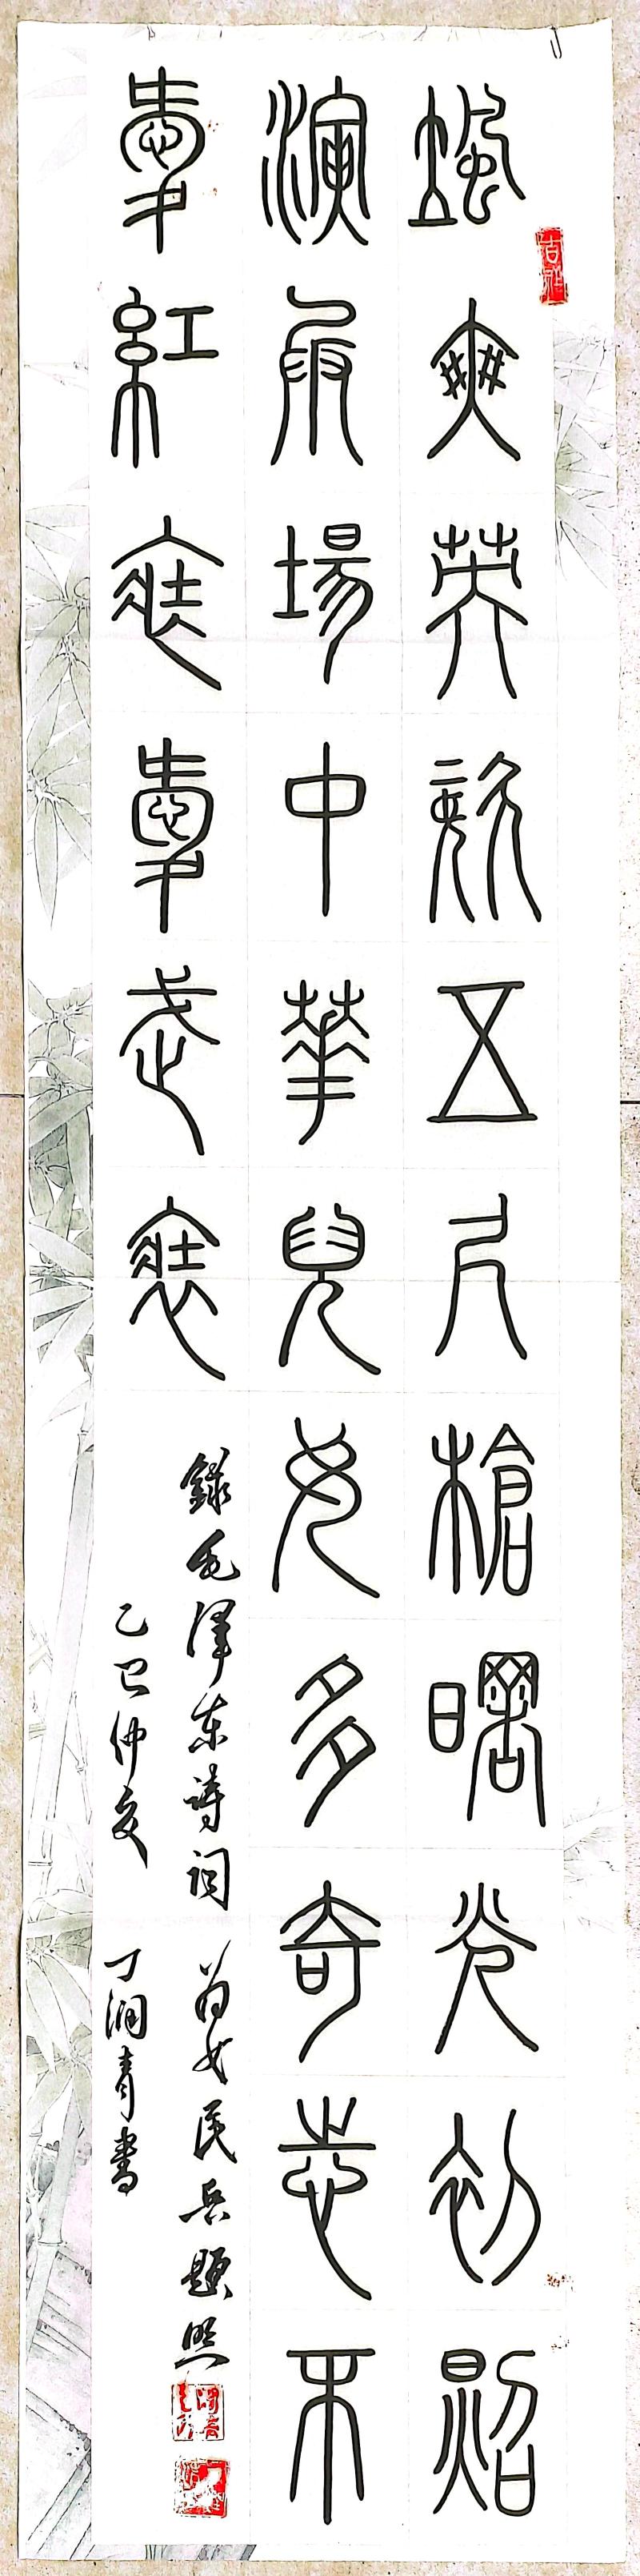 颯爽英姿五尺槍曙光初照
演兵場中華兒女多奇志不
愛紅裝愛武裝
錄毛澤東詩詞為女民兵題照
乙巳仲夏丁潤青書